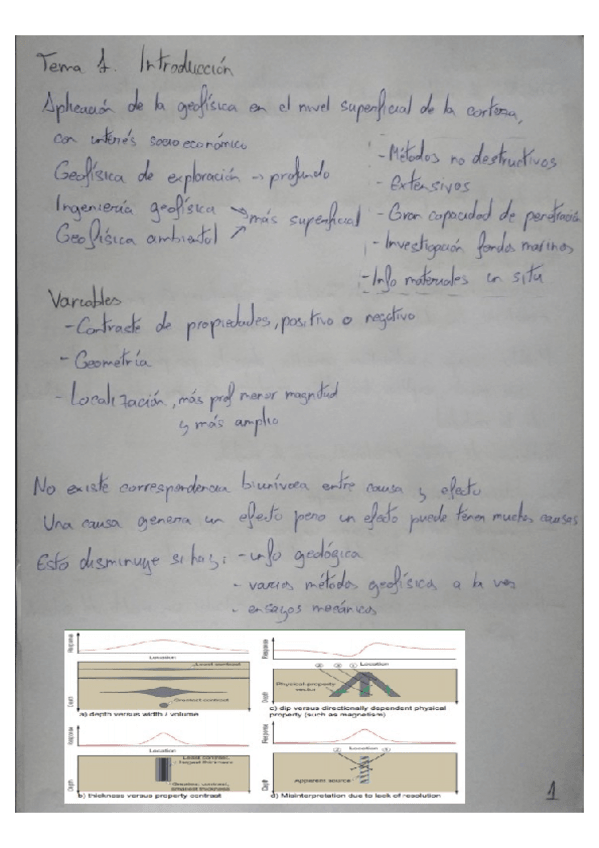 Tema 1. Introducción
Aplicación de la geofísica en el nivel superficial de la corteza,
con interés socioeconómico
Geofísica de exploración → profundo
Ingeniería geofísica
Geofísica ambiental
más superficial
- Métodos no destructivos
- Extensivos
- Gran capacidad de penetración
- Investigación fondos marinos
- Info materiales in situ
Variables
- Contraste de propiedades, positivo o negativo
- Geometría
- Localización, más prof menor magnitud
y más amplio
No existe correspondencia biunívoca entre causa y efecto
Una causa genera un efecto pero un efecto puede tener muchas causas
Esto disminuye si hay: - info geológica
- varios métodos geofísica a la vez
- ensayos mecánicos
Response
Location
Least contrast
Greatest contrast
Depth
a) depth versus width / volume
Response
Location
Physical property
vector
Depth
c) dip versus directionally dependent physical
property (such as magnetism)
Response
Location
Least contrast,
largest thickness
Greatest contrast,
smallest thickness
Depth
b) thickness versus property contrast
Response
Location
Apparent source
Depth
d) Misinterpretation due to lack of resolution
1